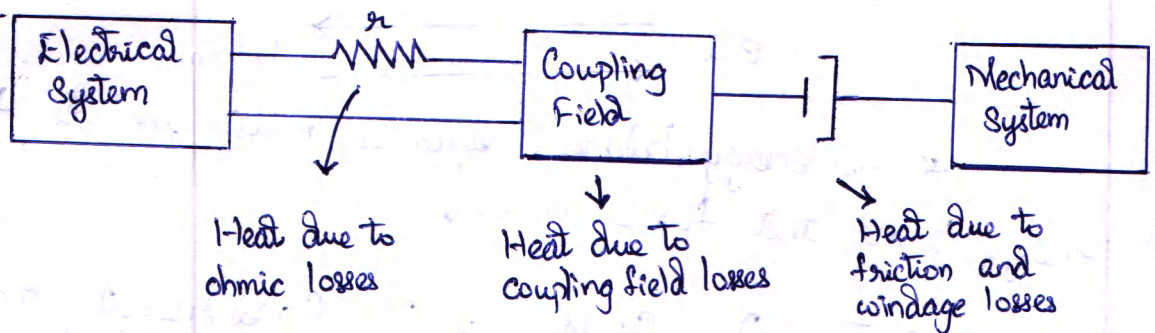 r
Electrical
System
Coupling
Field
Mechanical
System
Heat due to
ohmic losses
Heat due to
coupling field losses
Heat due to
friction and
windage losses